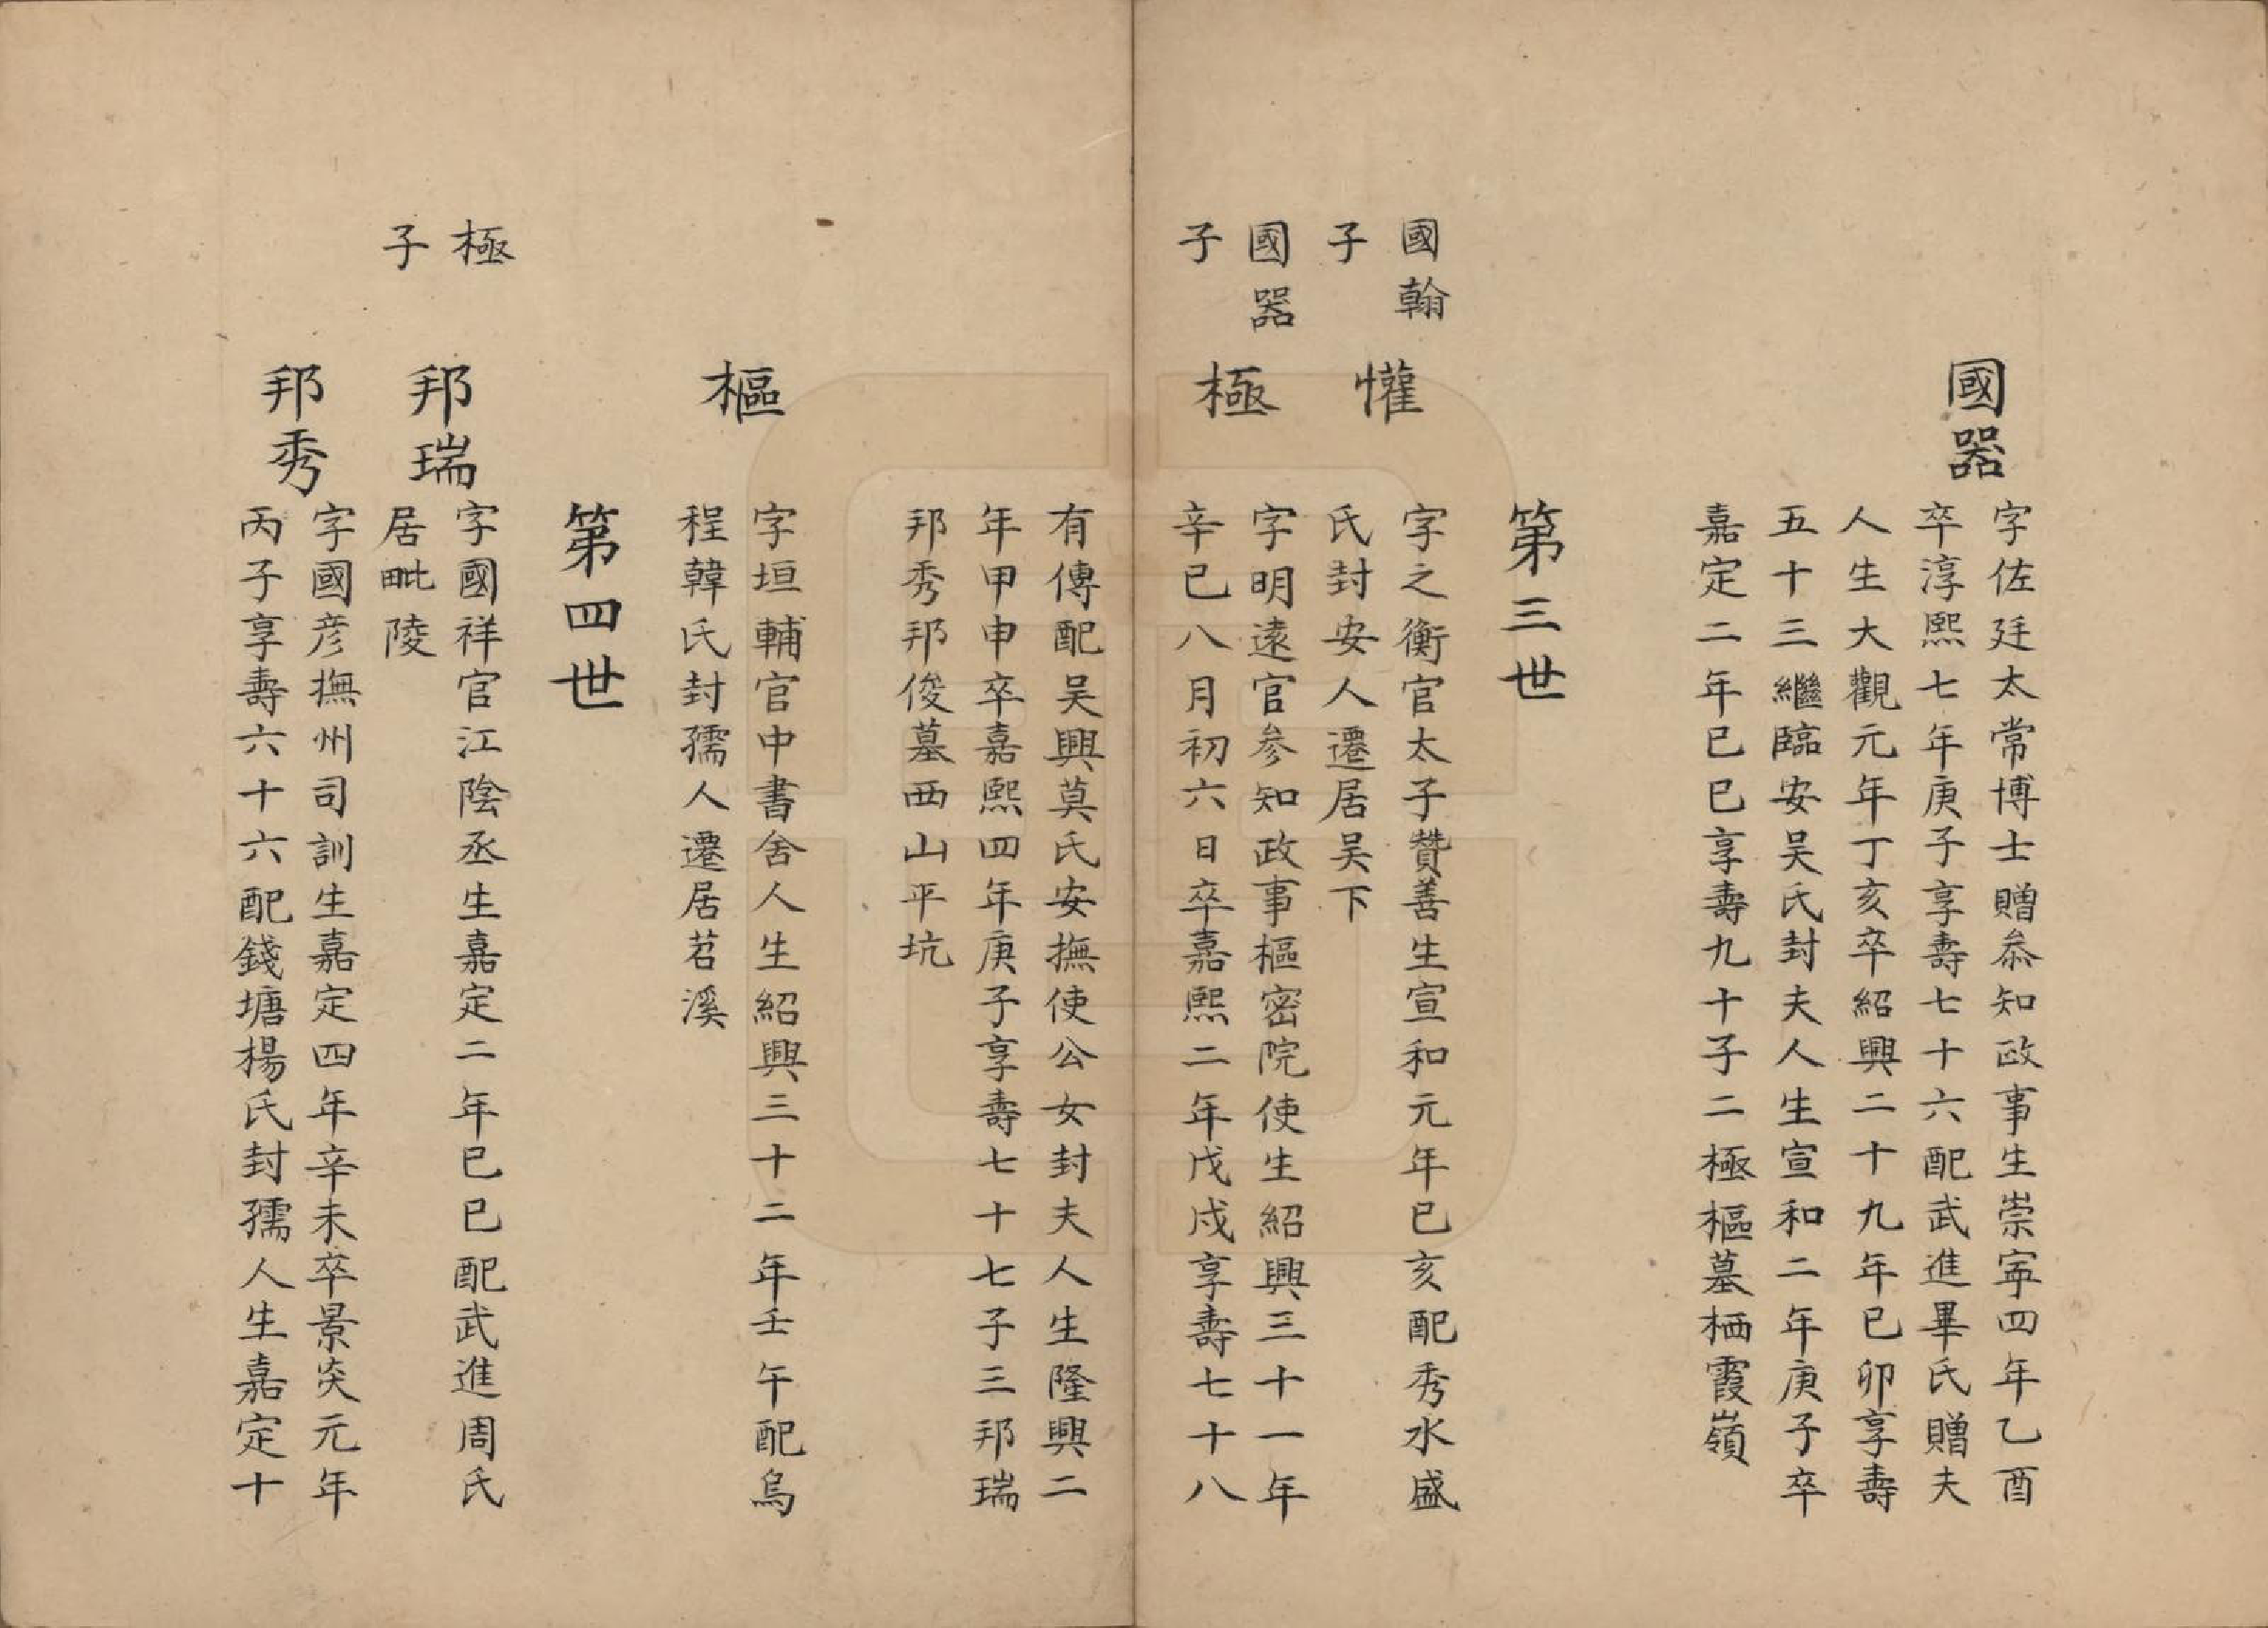 國器
字佐廷太常博士贈叅知政事生崇寜四年乙酉
卒淳熙七年庚子享壽七十六配武進畢氏贈夫
人生大觀元年丁亥卒紹興二十九年已卯享壽
五十三繼臨安吴氏封夫人生宣和二年庚子卒
嘉定二年已巳享壽九十子二極樞墓栖霞嶺
第三世
國翰子
懽
字之衡官太子贊善生宣和元年已亥配秀水盛
氏封安人遷居吴下
國器子
極
字明遠官參知政事樞密院使生紹興三十一年
辛巳八月初六日卒嘉熙二年戊戌享壽七十八
有傳配吴興莫氏安撫使公女封夫人生隆興二
年甲申卒嘉熙四年庚子享壽七十七子三邦瑞
邦秀邦俊墓西山平坑
樞
字垣輔官中書舍人生紹興三十二年壬午配烏
程韓氏封孺人遷居苕溪
第四世
極子
邦瑞
字國祥官江陰丞生嘉定二年已巳配武進周氏
居毗陵
邦秀
字國彦撫州司訓生嘉定四年辛未卒景炎元年
丙子享壽六十六配錢塘楊氏封孺人生嘉定十